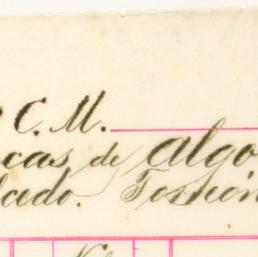 C. M.
cas de algo
cedo. Torsión